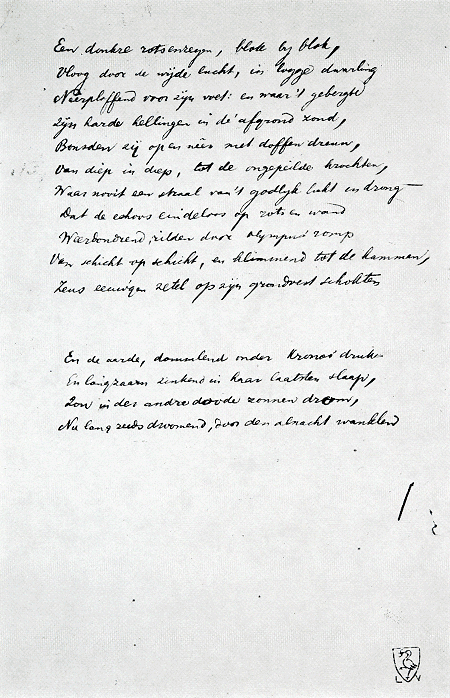 Een donkre rotsenregen, blok bij blok,
Vloog door de wijde lucht, in logge dwarling
Neerploffend voor zijn voet: en waar 't gebergte
Zijn harde hellingen in de' afgrond zond,
Bonsden zij op en néér met doffen dreun,
Van diep in diep, tot de ongepeilde krochten,
Waar nooit een straal van 't godlijk licht in drong
Dat de echoos eindeloos op rots en wand
Weerdondrend, rilden door Olympus' romp
Van schicht op schicht, en klimmend tot de kammen,
Zeus eeuwigen zetel op zijn grondvest schokten

En de aarde, dommlend onder Kronos' druk
En langzaam zinkend in haar laatsten slaap,
Zou in der andre doode zonnen droom,
Nu lang reeds droomend, door den alnacht wanklend
L V